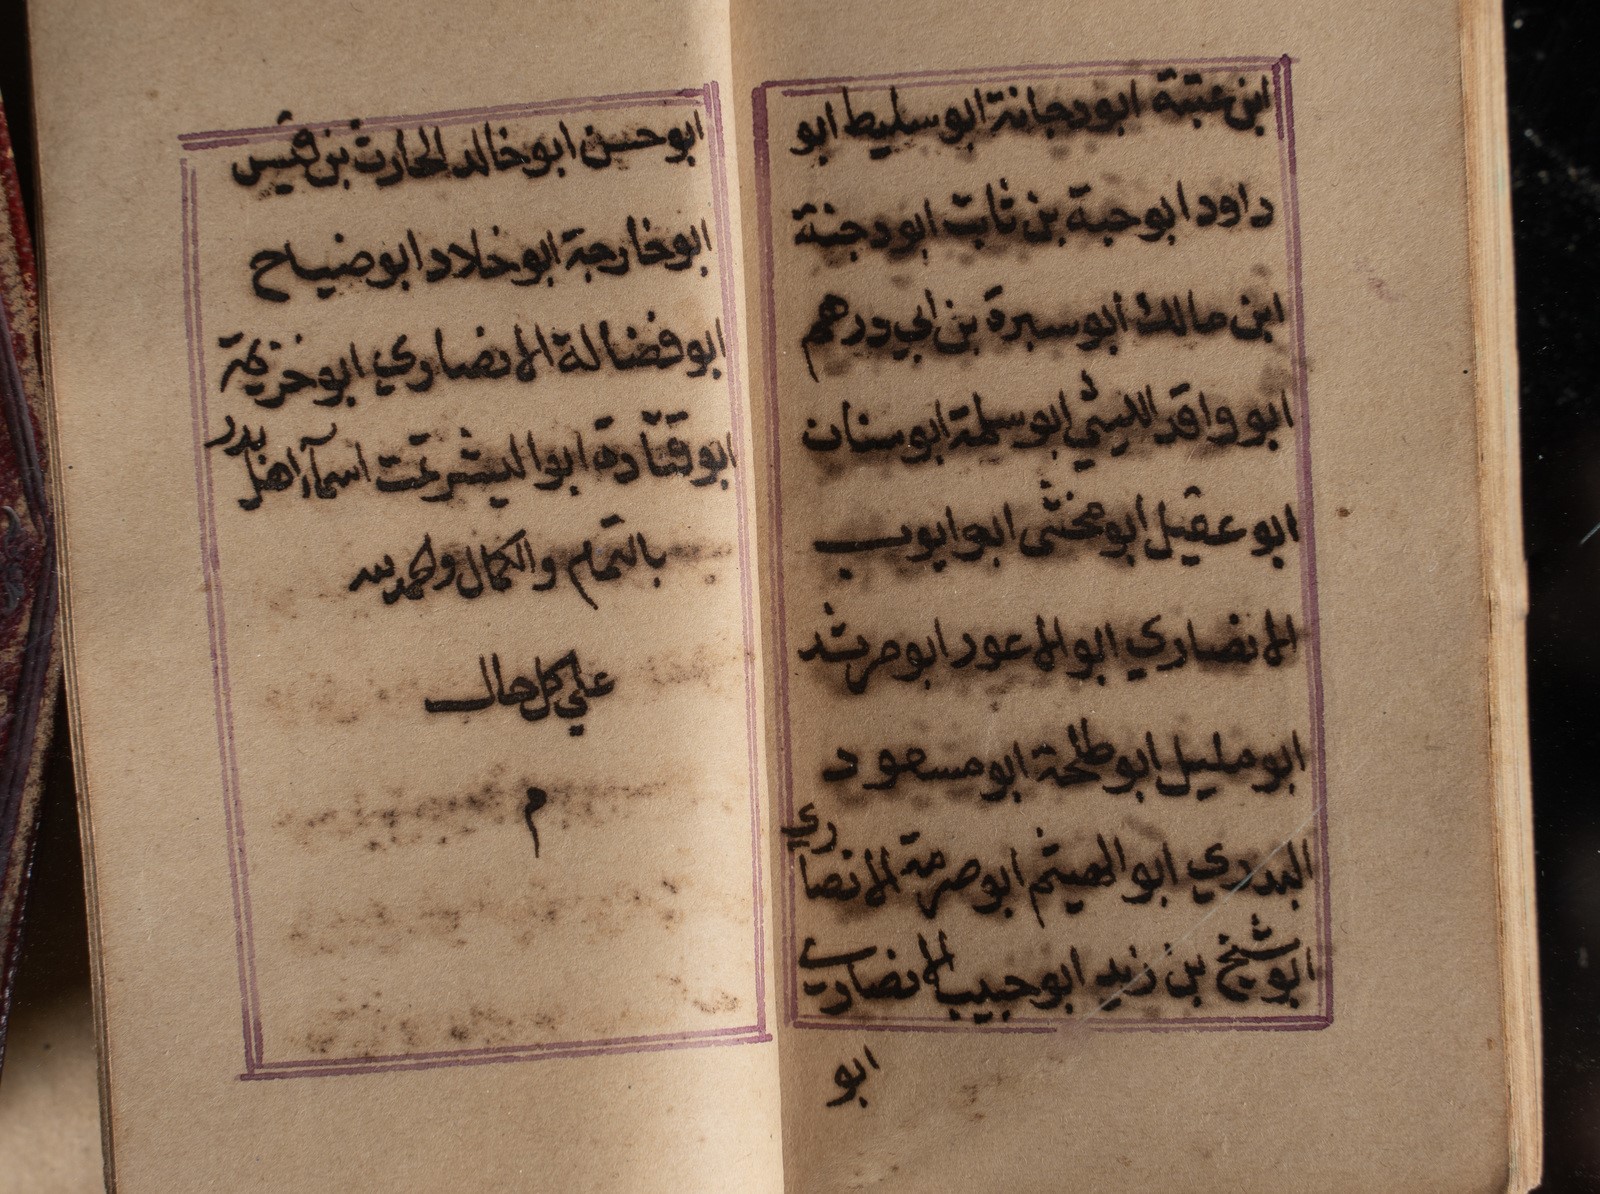 ابن عتبة ابو دجانة ابو سليط ابو
داود ابو حبة بن ثابت ابو دجنة
ابن مالك ابو سبرة بن ابي درهم
ابو واقد الليثي ابو سلمة ابو سنان
ابو عقيل ابو مخشى ابو ايوب
الانصاري ابو الاعور ابو مرشد
ابو مليل ابو طلحة ابو مسعود
البدري ابو الهيثم ابو صرمة الانصاري
ابو شيخ بن زيد ابو حبيب الانصاري
ابو
ابو حسن ابو خالد الحارث بن قيس
ابو خارجة ابو خلاد ابو ضياح
ابو فضالة الانصاري ابو خزيمة
ابو قتادة ابو اليشر تمت اسمآء اهل بدر
بالتمام والكمال والحمد لله
علي كل حال
م